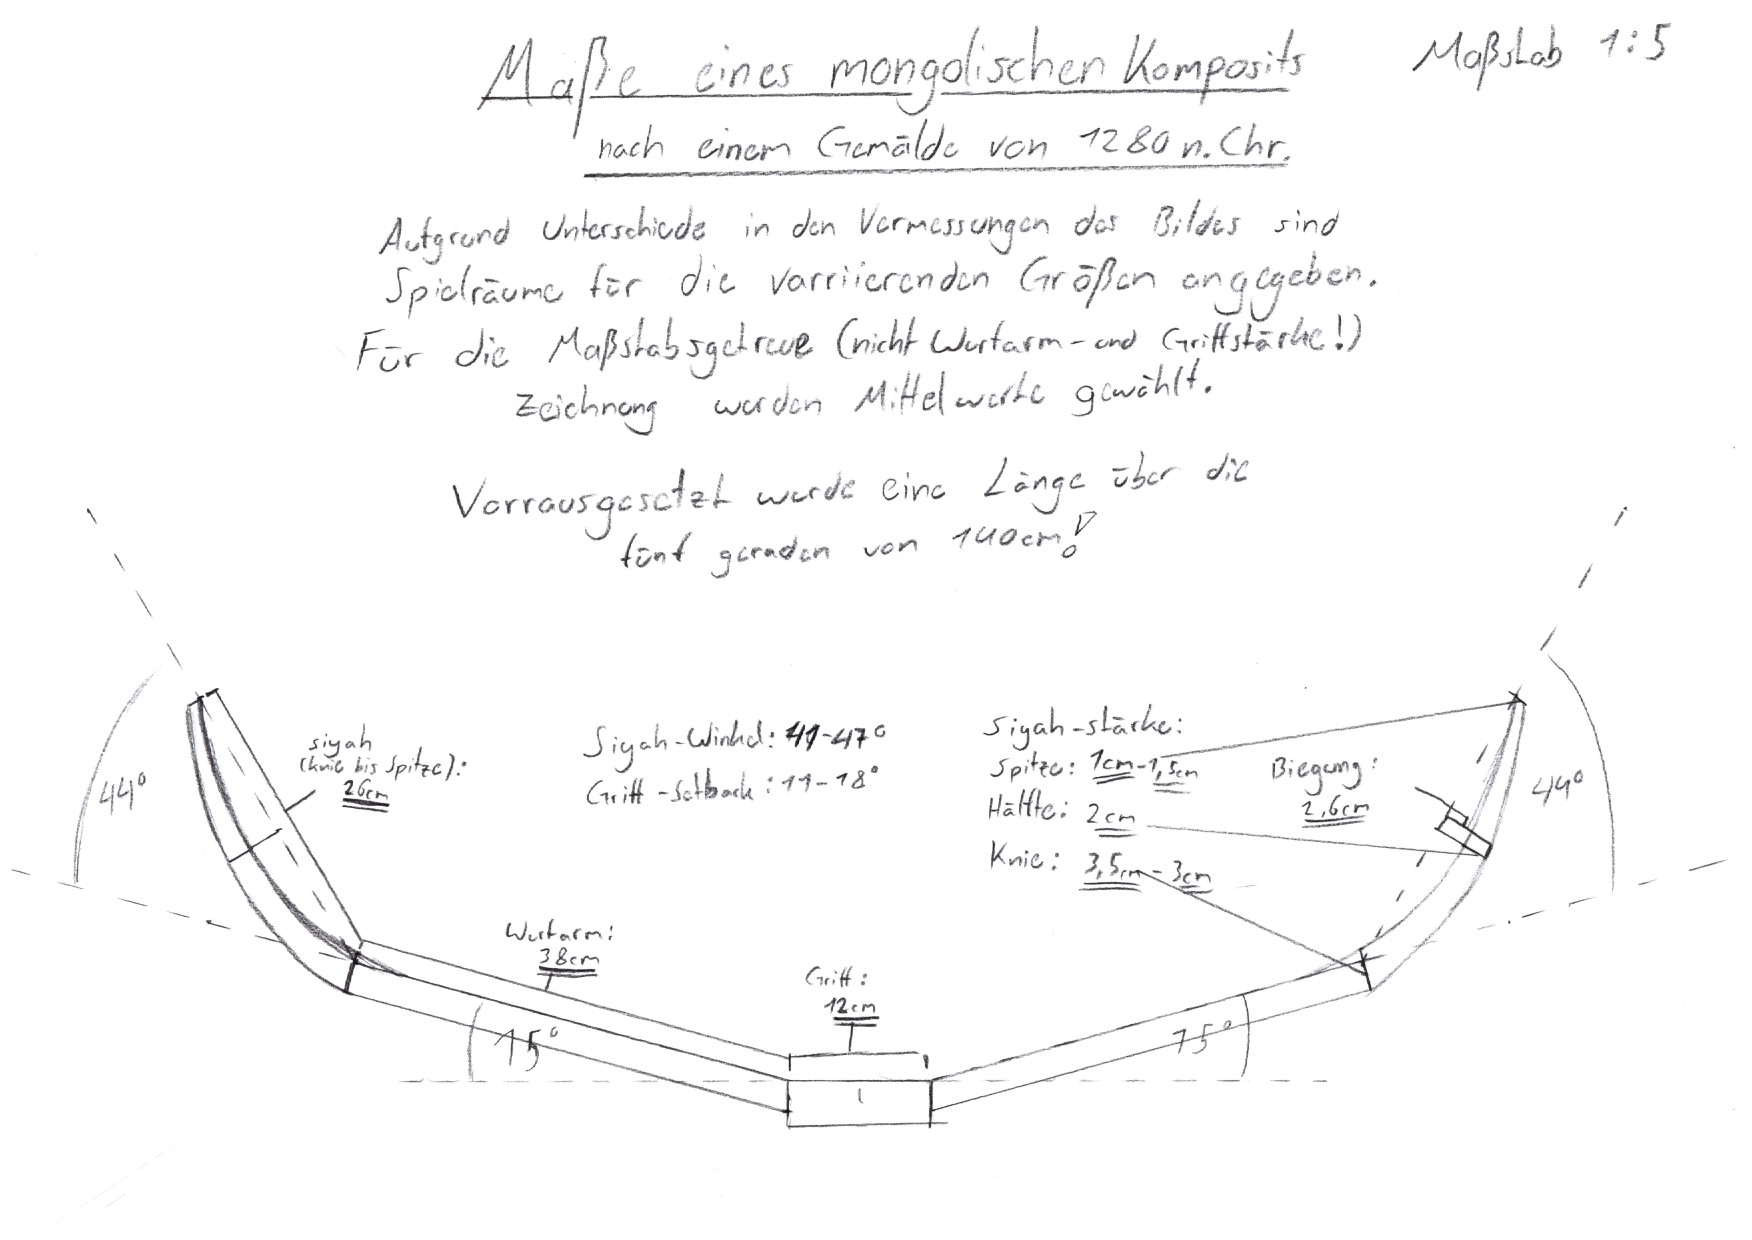 Maße eines mongolischen Komposits
Maßstab 1:5
nach einem Gemälde von 1280 n. Chr.
Aufgrund Unterschiede in den Vermessungen des Bildes sind
Spielräume für die varriierenden Größen angegeben.
Für die Maßstabsgetreue (nicht Wurfarm- und Griffstärke!)
Zeichnung wurden Mittelwerte gewählt.
Vorrausgesetzt wurde eine Länge über die
fünf geraden von 140cm!
siyah
(knie bis Spitze):
26cm
44°
Siyah-Winkel: 41-47°
Griff-Setback: 11-18°
Siyah-stärke:
Spitze: 1cm-1,5cm
Hälfte: 2cm
Knie: 3,5cm-3cm
Biegung:
2,6cm
44°
Wurfarm:
38cm
Griff:
12cm
15°
15°